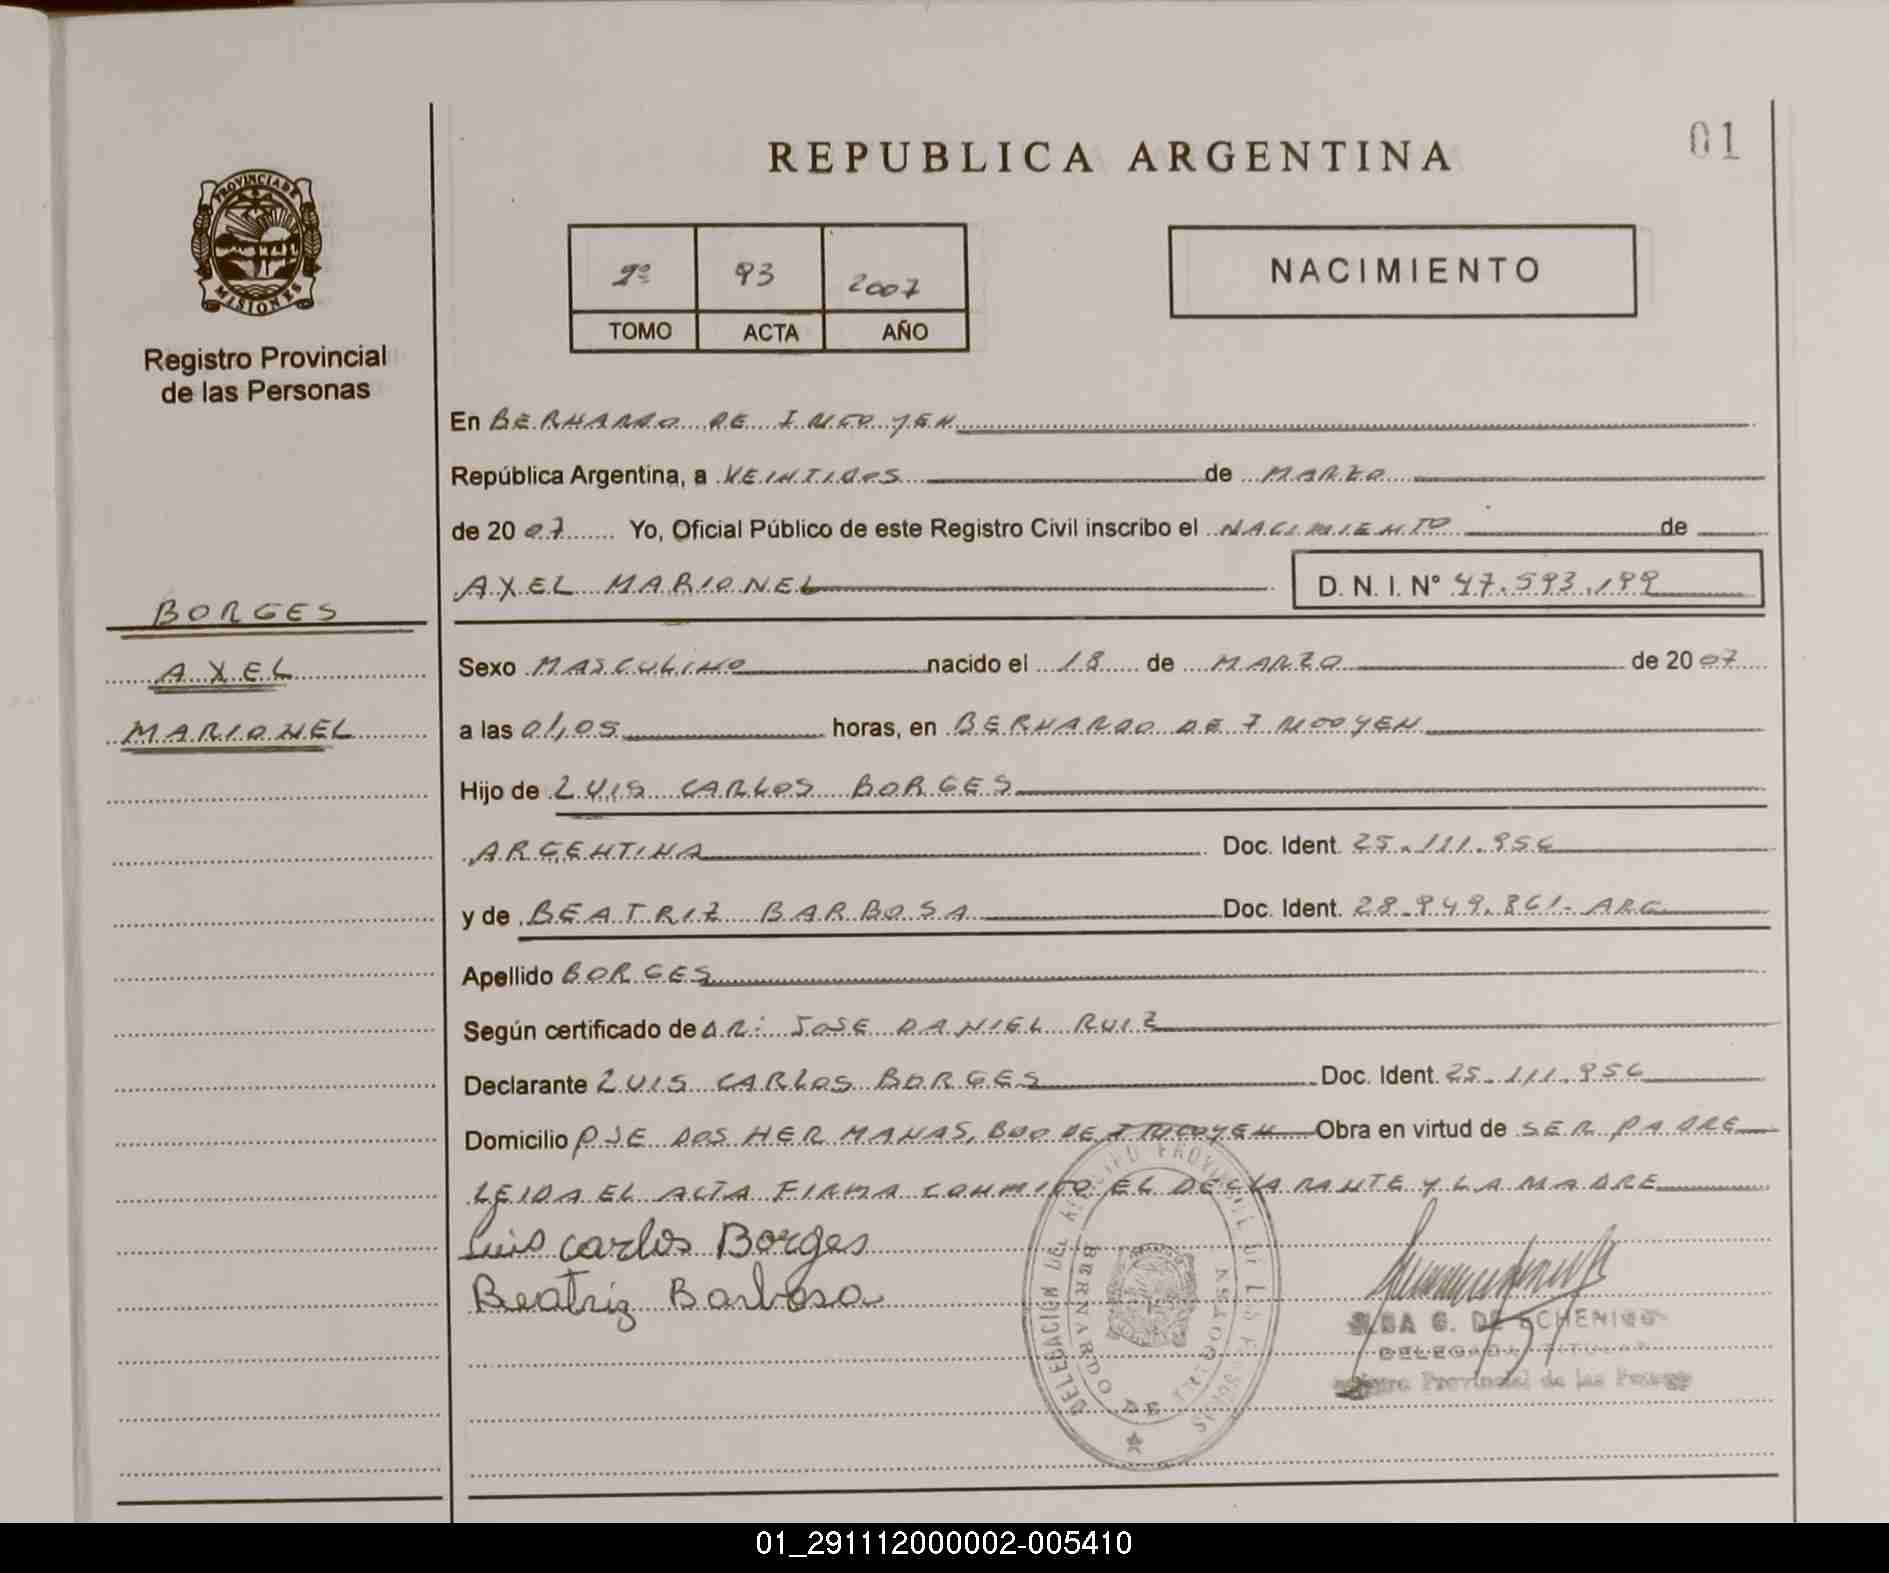 REPUBLICA ARGENTINA
01
PROVINCIA DE
MISIONES
Registro Provincial
de las Personas
2º 93 2007
TOMO ACTA AÑO
NACIMIENTO
En BERNARDO DE IRIGOYEN
República Argentina, a VEINTIDOS de MARZO
de 2007 Yo, Oficial Público de este Registro Civil inscribo el NACIMIENTO de
AXEL MARIONEL D. N. I. Nº 47.593.199
BORGES
AXEL
MARIONEL
Sexo MASCULINO nacido el 18 de MARZO de 2007
a las 01,05 horas, en BERNARDO DE IRIGOYEN
Hijo de LUIS CARLOS BORGES
ARGENTINA Doc. Ident. 25.111.956
y de BEATRIZ BARBOSA Doc. Ident. 28.949.861- ARG
Apellido BORGES
Según certificado de DR: JOSE DANIEL RUIZ
Declarante LUIS CARLOS BORGES Doc. Ident. 25.111.956
Domicilio PJE DOS HERMANAS, BDO DE IRIGOYEN Obra en virtud de SER PADRE
LEIDA EL ACTA FIRMA CONMIGO EL DECLARANTE Y LA MADRE
Luis Carlos Borges
Beatriz Barbosa
DELEGACIÓN DEL REGISTRO PROVINCIAL DE LAS PERSONAS
BERNARDO DE IRIGOYEN
G. DE
DELEGADA TITULAR
Registro Provincial de las Personas
01_291112000002-005410